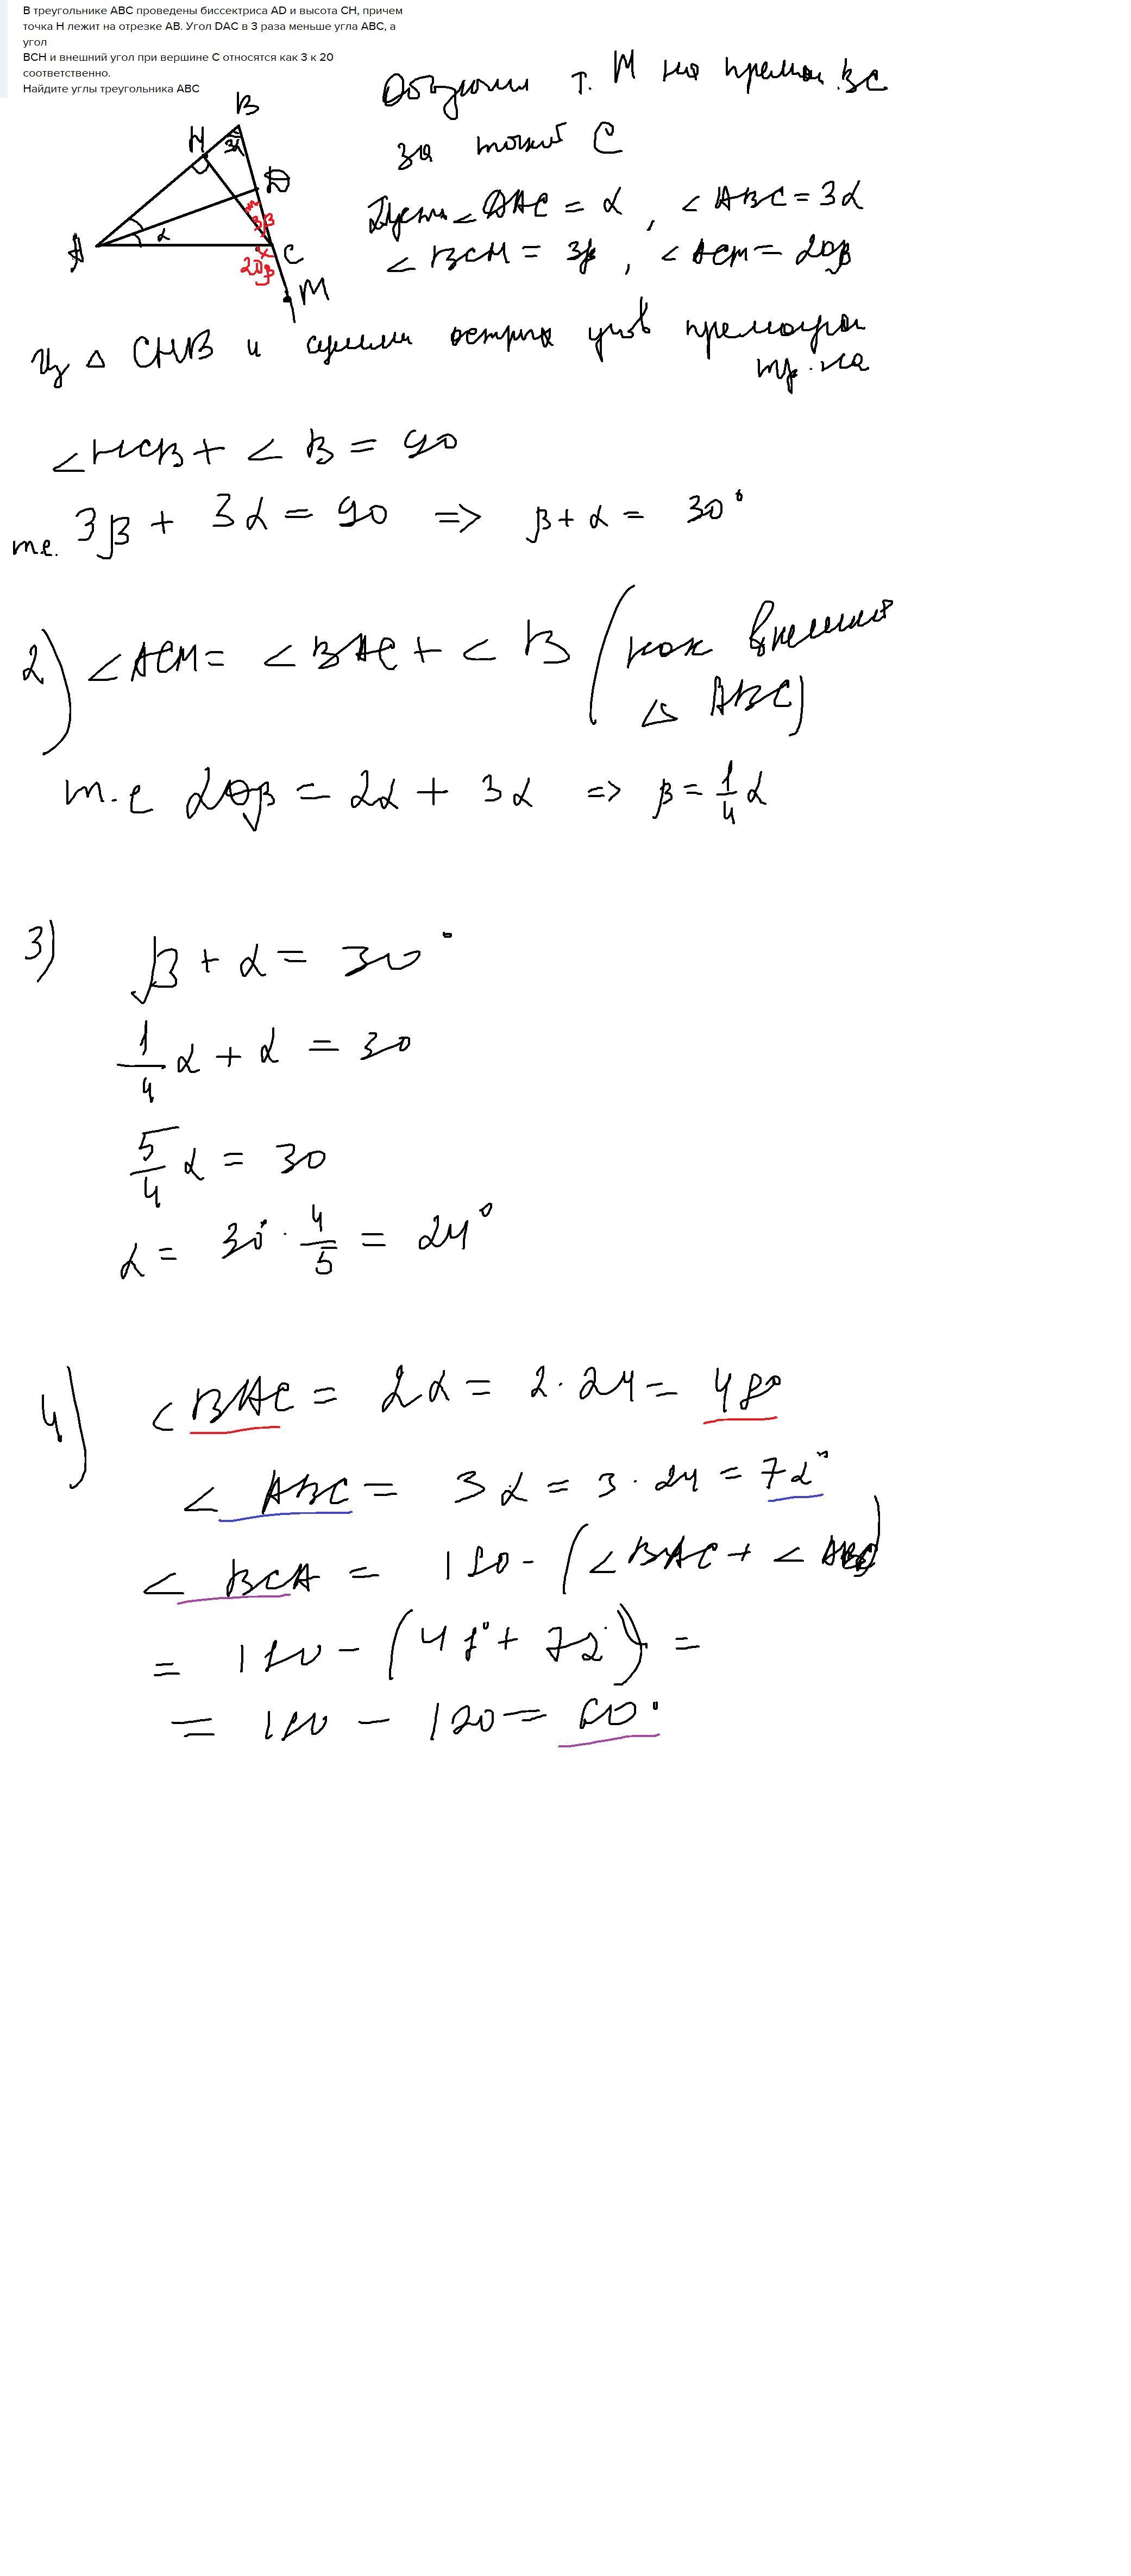 В треугольнике ABC проведены биссектриса AD и высота CH, причем
точка H лежит на отрезке AB. Угол DAC в 3 раза меньше угла ABC, а
угол
BCH и внешний угол при вершине C относятся как 3 к 20
соответственно.
Найдите углы треугольника ABC
т. M на прямой BC
за точкой C
Пусть ∠DAC = α, ∠ABC = 3α
∠BCM = 3β, ∠ACM = 20β
B
H
3α
D
3β
A
α
C
20β
M
Из △ CHB и суммы острых углов прямоугол
тр-ка
∠HCB + ∠B = 90
т.е. 3β + 3α = 90 => β + α = 30°
2) ∠ACM = ∠BAC + ∠B (как внешний
△ ABC)
т.е 20β = 2α + 3α => β = 1/4 α
3) β + α = 30°
1/4 α + α = 30
5/4 α = 30
α = 30° · 4/5 = 24°
4) ∠BAC = 2α = 2·24 = 48°
∠ABC = 3α = 3·24 = 72°
∠BCA = 180 - (∠BAC + ∠ABC)
= 180 - (48° + 72°) =
= 180 - 120 = 60°